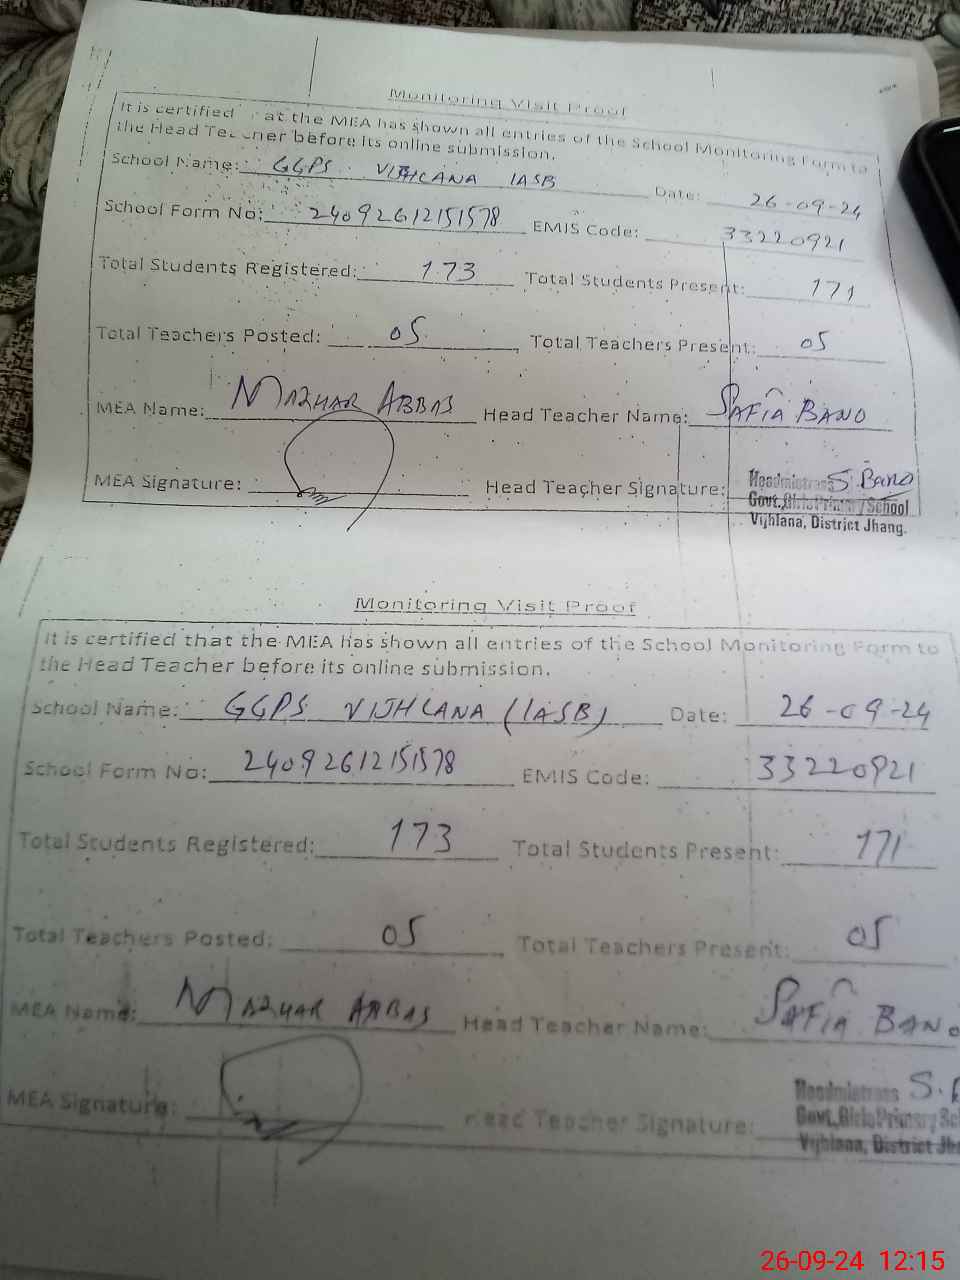 Monitoring Visit Proof
It is certified at the MEA has shown all entries of the School Monitoring Form to
the Head Teacher before its online submission.
School Name: GGPS VIJHLANA IASB Date: 26-09-24
School Form No: 24092612151578 EMIS Code: 33220921
Total Students Registered: 173 Total Students Present: 171
Total Teachers Posted: 05 Total Teachers Present: 05
MEA Name: MAZHAR ABBAS Head Teacher Name: SAFIA BANO
MEA Signature: Head Teacher Signature: S. BANO
Headmistress
Govt. Girls Primary School
Vijhlana, District Jhang.
Monitoring Visit Proof
It is certified that the MEA has shown all entries of the School Monitoring Form to
the Head Teacher before its online submission.
School Name: GGPS VIJHLANA (IASB) Date: 26-09-24
School Form No: 24092612151578 EMIS Code: 33220921
Total Students Registered: 173 Total Students Present: 171
Total Teachers Posted: 05 Total Teachers Present: 05
MEA Name: MAZHAR ABBAS Head Teacher Name: SAFIA BANO
MEA Signature: Head Teacher Signature: S.
Headmistress
Govt. Girls Primary Sc
Vijhlana, District Jh
26-09-24 12:15